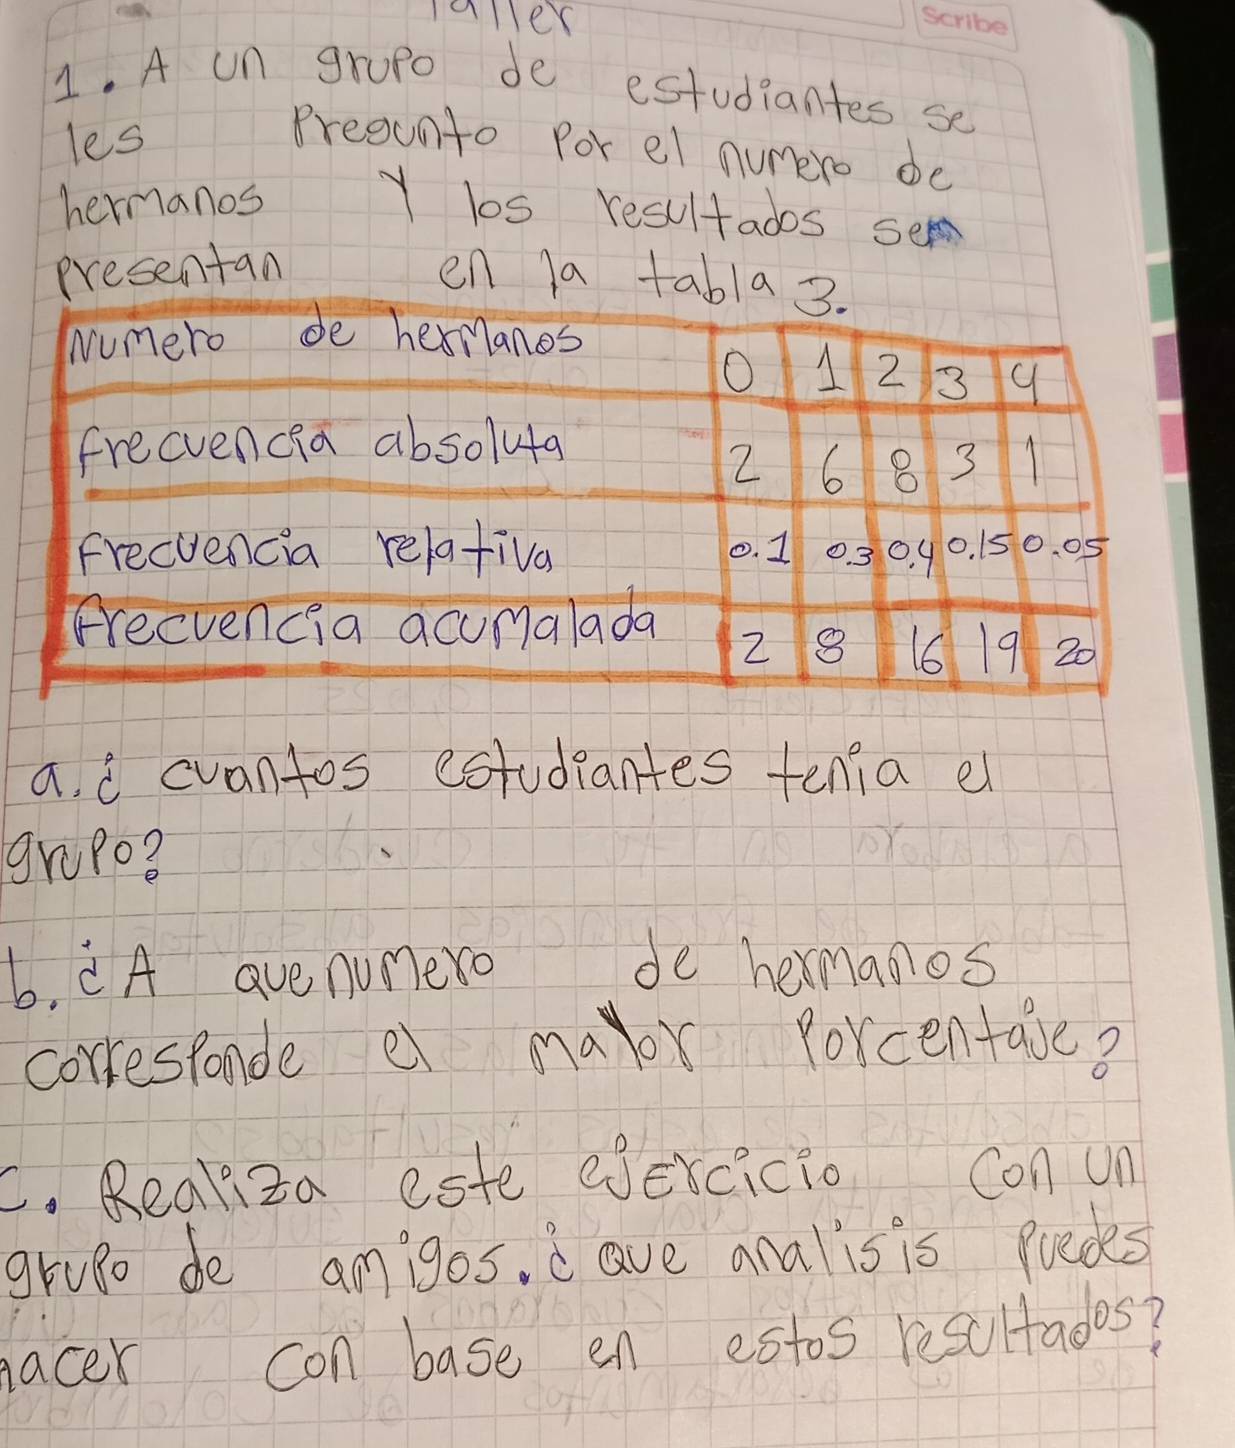 Taller
Scribe
1. A un grupo de estudiantes se
les Pregunto Por el numero de
hermanos Y los resultados se
presentan en la tabla 3.
Numero de hermanos 0 1 2 3 4
frecuencia absoluta 2 6 8 3 1
Frecuencia relativa 0.1 0.3 0.4 0.15 0.05
frecuencia acumalada 2 8 16 19 20
a. ¿ cuantos estudiantes tenia el
grupo?
b. ¿A que numero de hermanos
corresponde el mayor Porcentaje?
c. Realiza este ejercicio con un
grupo de amigos. ¿ que analisis Puedes
hacer con base en estos resultados?